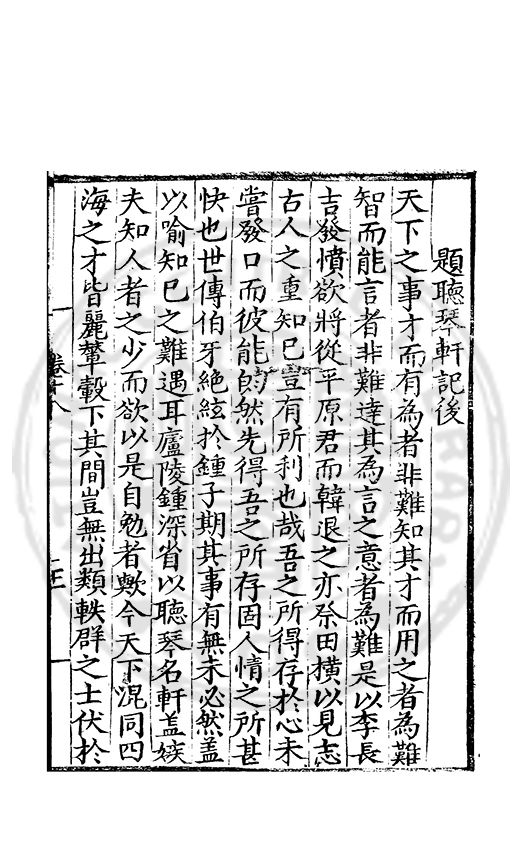 題聽琴軒記後
天下之事才而有為者非難知其才而用之者為難
智而能言者非難達其為言之意者為難是以李長
吉發憤欲將從平原君而韓退之亦祭田橫以見志
古人之重知已豈有所利也哉吾之所得存於心未
嘗發口而彼能的然先得吾之所存固人情之所甚
快也世傳伯牙絶絃於鍾子期其事有無未必然盖
以喻知已之難遇耳廬陵鍾深省以聽琴名軒盖嫉
夫知人者之少而欲以是自勉者歟今天下混同四
海之才皆麗輦轂下其間豈無出類軼群之士伏於
卷十八